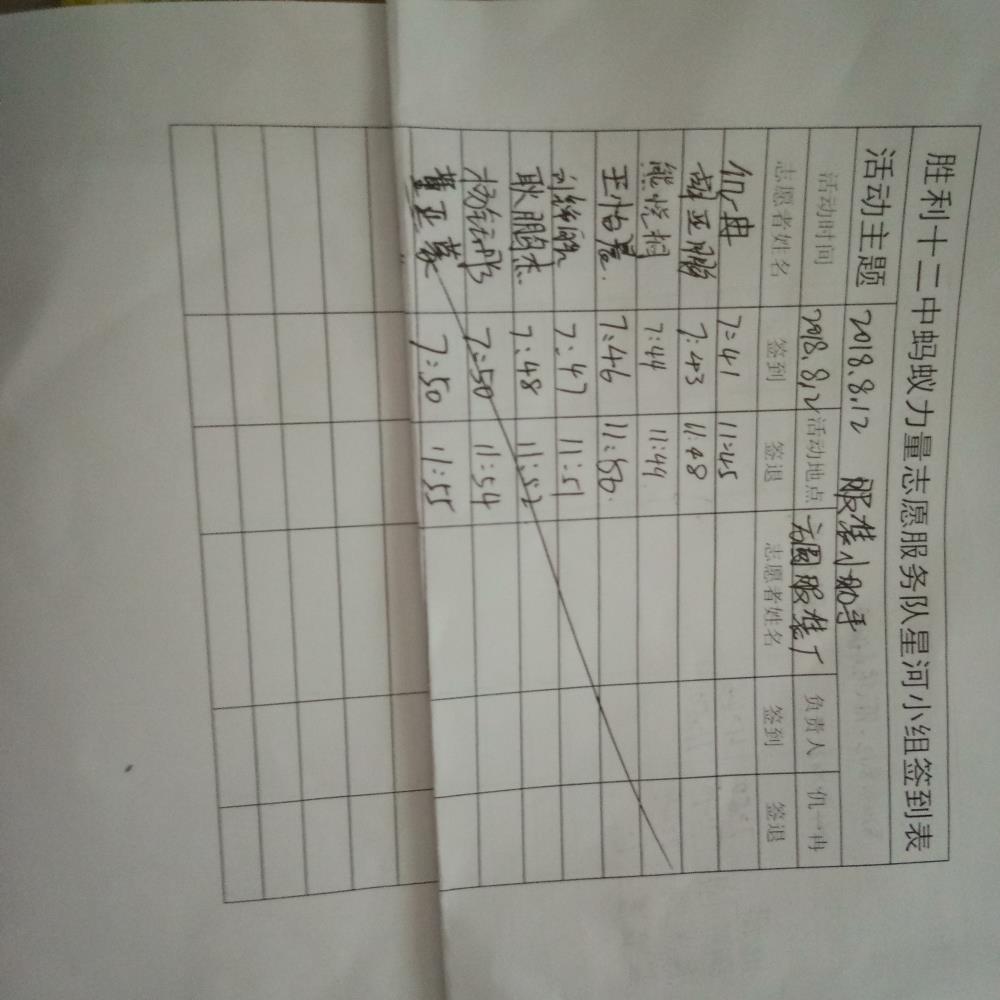 胜利十二中蚂蚁力量志愿服务队星河小组签到表
活动主题 2018.8.12 服装小助手
活动时间 2018.8.12 活动地点 方圆服装厂 负责人 仉一冉
志愿者姓名 签到 签退 志愿者姓名 签到 签退
仉一冉 7:41 11:45
胡亚鹏 7:43 11:48
熊悦桐 7:44 11:49
王怡晨 7:46 11:50
7:47 11:51
耿鹏杰 7:48 11:52
7:50 11:54
董亚蒙 7:50 11:55